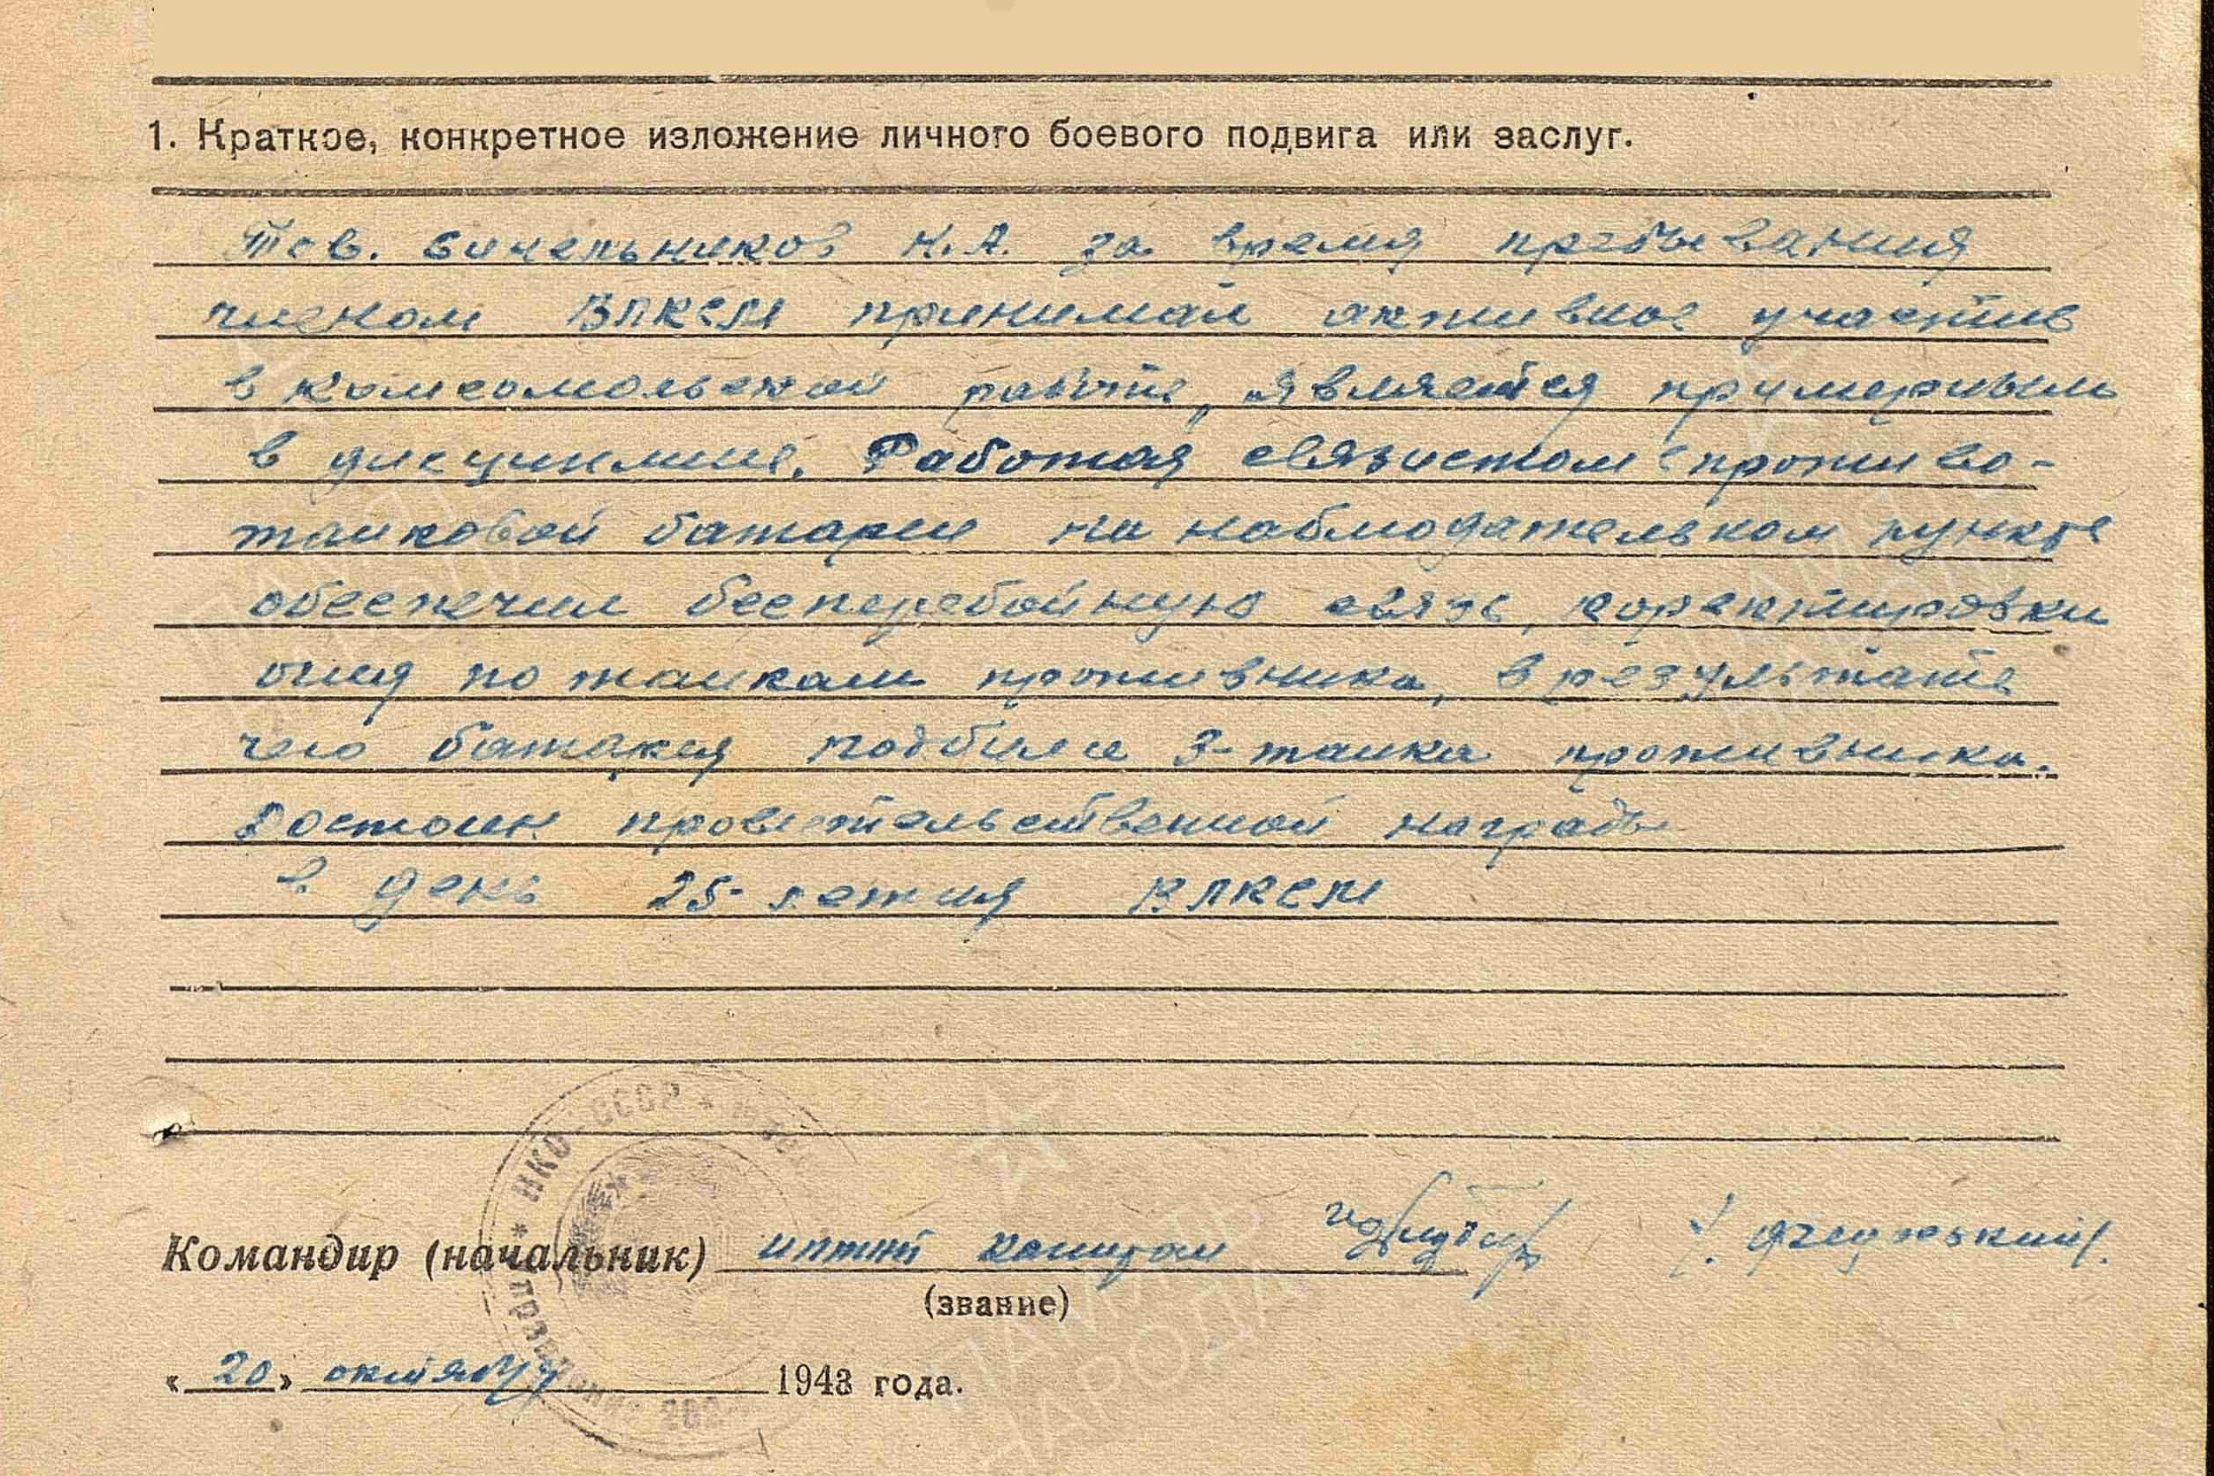 1. Краткое, конкретное изложение личного боевого подвига или заслуг.
Тов. К.А. за время пребывания
членом ВЛКСМ принимал активное участие
в комсомольской работе, является примерным
в дисциплине. Работая связистом противо-
танковой батареи на наблюдательном пункте
обеспечил бесперебойную связь, коректировки
огня по танкам противника, в результате
чего батарея подбила 3-танка противника.
Достоин провительственной награды
в день 25-летия ВЛКСМ
Командир (начальник) капитан
(звание)
"20" октября 1943 года.
НКО-СССР *